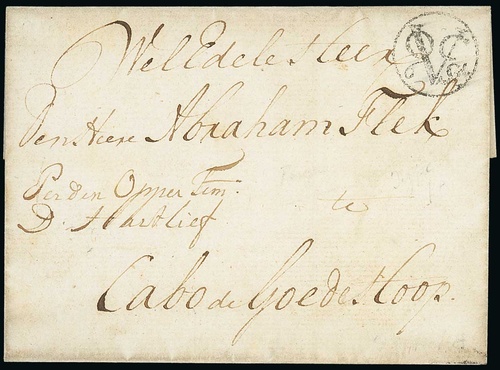 Wel Edele Heer
Den Heere Abraham Flek
Per den Opper Tim:
D. Hartlief
te
Cabo de Goede Hoop.